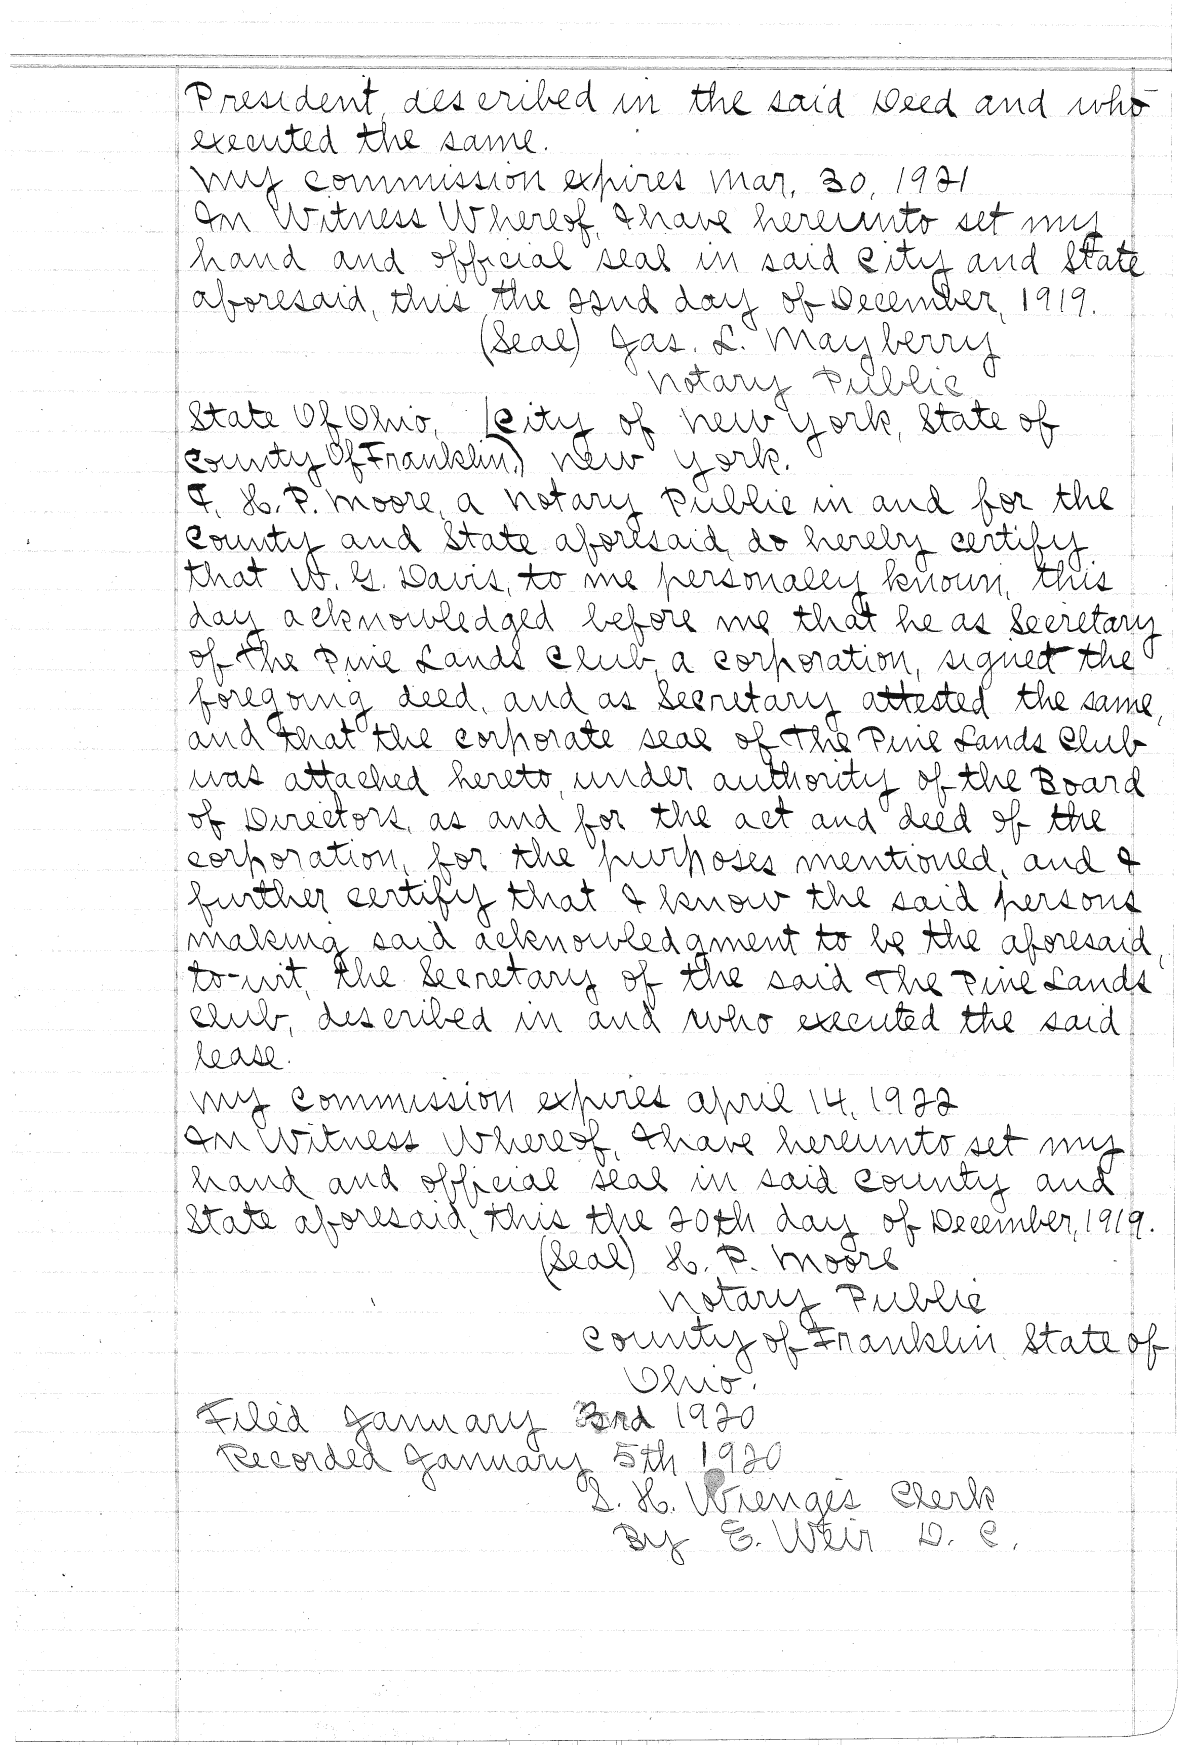 President, described in the said Deed and who
executed the same.
My commission expires Mar, 30, 1921
In Witness Whereof, I have hereunto set my
hand and official seal in said City and State
aforesaid, this, the 22nd day of December, 1919.
(Seal) Jas. L. Mayberry
Notary Public
State Of Ohio, (City of New York, State of
County Of Franklin,) New York.
I, H. P. Moore, a Notary Public in and for the
County and State aforesaid, do hereby certify
that W. G. Davis, to me personally known, this
day acknowledged before me, that he as Secretary
of The Pine Lands Club, a corporation, signed the
foregoing deed, and as Secretary attested the same,
and that the corporate seal of The Pine Lands Club
was attached hereto, under authority of the Board
of Directors, as and for the act and deed of the
corporation, for the purposes mentioned, and I
further certify that I know the said persons
making said acknowledgment to be the aforesaid,
to-wit, the Secretary of the said The Pine Lands
Club, described in and who executed the said
lease.
My commission expires April 14, 1922
In Witness Whereof, I have hereunto set my
hand and official seal in said County and
State aforesaid, this the 20th day of December, 1919.
(Seal) H. P. Moore
Notary Public
County of Franklin, State of
Ohio.
Filed January 3rd 1920
Recorded January 5th 1920
S. H. Wienges Clerk
By E. Weir D. C.